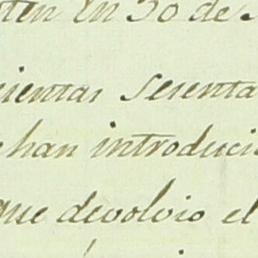 en 30 de
cientas Sesenta
han introduci
que devolvio el